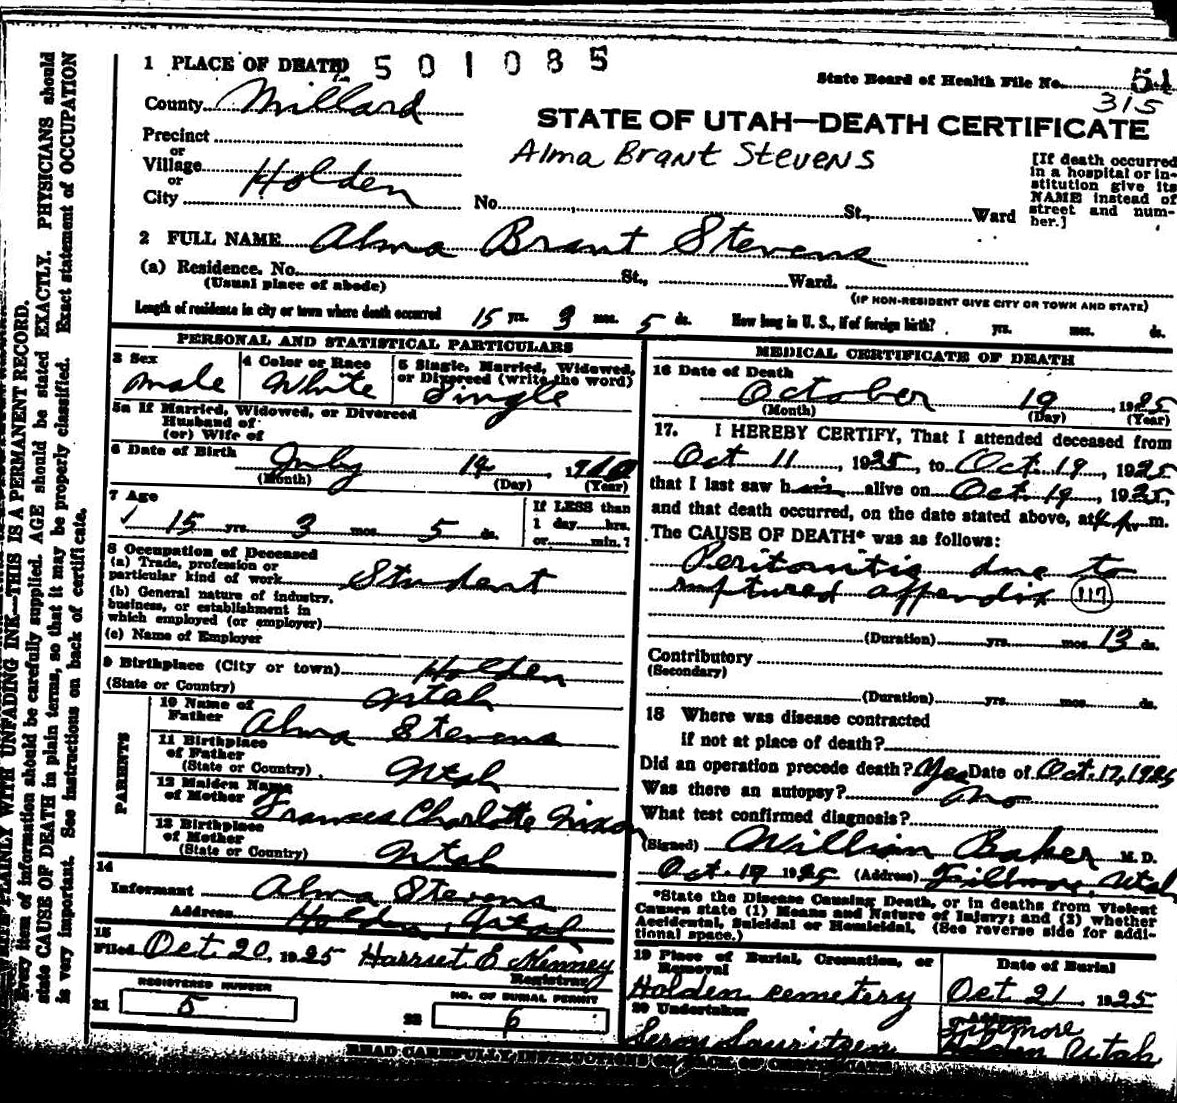 1 PLACE OF DEATH 2 501085
State Board of Health File No. 51
315
County Millard
STATE OF UTAH—DEATH CERTIFICATE
Alma Brant Stevens
Precinct
or
Village
or
City Holden No. St., Ward
[If death occurred in a hospital or institution give its NAME instead of street and number.]
2 FULL NAME Alma Brant Stevens
(a) Residence. No. St., Ward.
(Usual place of abode) (IF NON-RESIDENT GIVE CITY OR TOWN AND STATE)
Length of residence in city or town where death occurred 15 yrs. 3 mos. 5 ds. How long in U. S., if of foreign birth? yrs. mos. ds.
PERSONAL AND STATISTICAL PARTICULARS
3 Sex
male
4 Color or Race
White
5 Single, Married, Widowed, or Divorced (write the word)
Single
5a If Married, Widowed, or Divorced
Husband of
(or) Wife of
6 Date of Birth July 14, 1910
(Month) (Day) (Year)
7 Age
15 yrs. 3 mos. 5 ds.
If LESS than
1 day hrs.
or min.?
8 Occupation of Deceased
(a) Trade, profession or
particular kind of work Student
(b) General nature of industry,
business, or establishment in
which employed (or employer)
(c) Name of Employer
9 Birthplace (City or town) Holden
(State or Country) Utah
PARENTS
10 Name of
Father Alma Stevens
11 Birthplace
of Father
(State or Country) Utah
12 Maiden Name
of Mother Frances Charlotte Nixon
13 Birthplace
of Mother
(State or Country) Utah
14
Informant Alma Stevens
Address Holden, Utah
15
Filed Oct. 20, 1925 Harriet E Kenney
Registrar
REGISTERED NUMBER
21 5
NO. OF BURIAL PERMIT
22 6
MEDICAL CERTIFICATE OF DEATH
16 Date of Death
October 19, 1925
(Month) (Day) (Year)
17. I HEREBY CERTIFY, That I attended deceased from
Oct 11, 1925, to Oct. 19, 1925
that I last saw him alive on Oct. 19, 1925,
and that death occurred, on the date stated above, at m.
The CAUSE OF DEATH* was as follows:
Peritonitis due to
ruptured appendix (117)
(Duration) yrs. mos. 13 ds.
Contributory
(Secondary)
(Duration) yrs. mos. ds.
18 Where was disease contracted
if not at place of death?
Did an operation precede death? Yes Date of Oct. 17, 1925
Was there an autopsy? no
What test confirmed diagnosis?
(Signed) William Baker M. D.
Oct. 19 1925 (Address) Fillmore, Utah
*State the Disease Causing Death, or in deaths from Violent
Causes state (1) Means and Nature of Injury; and (2) whether
Accidental, Suicidal or Homicidal. (See reverse side for addi-
tional space.)
19 Place of Burial, Cremation, or
Removal
Holden cemetery
Date of Burial
Oct 21 1925
20 Undertaker
Leroy Lauritzen
Address
Fillmore
Holden Utah
READ CAREFULLY INSTRUCTIONS ON BACK OF CERTIFICATE
WRITE PLAINLY WITH UNFADING INK—THIS IS A PERMANENT RECORD.
Every item of information should be carefully supplied. AGE should be stated EXACTLY. PHYSICIANS should
state CAUSE OF DEATH in plain terms, so that it may be properly classified. Exact statement of OCCUPATION
is very important. See instructions on back of certificate.